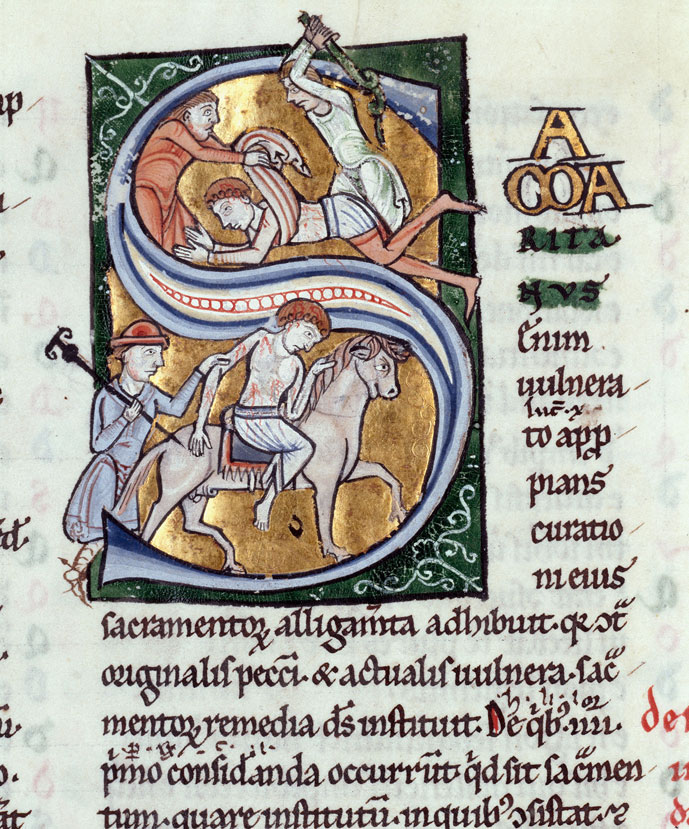 S A
MA
RITA
NVS
enim
uulnera
to app
pians
curatio
ni eius
sacramentoꝝ alligam̄ta adhibuit. qꝛ ↄt̄
originalis pecc̄i. & actualis uulnera. sac̄
mentoꝝ remedia d̄s instituit. De qb; .iiii.
p̄mo consid̄anda occurrūt. qͥd sit sac̄men
tum. quare institutū. in quibꝰ ↄsistat. &